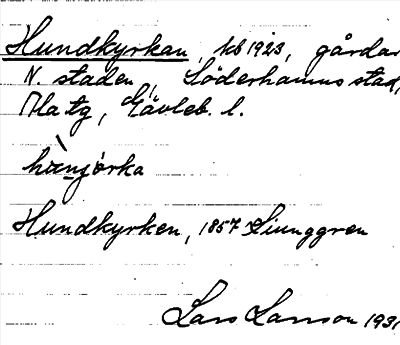 Hundkyrkan, kb 1923, gårdar
N. staden, Söderhamns stad,
Matg, Gävleb. l.
Hundkyrken, 1857 Ljunggren
Lars Larsson 1931